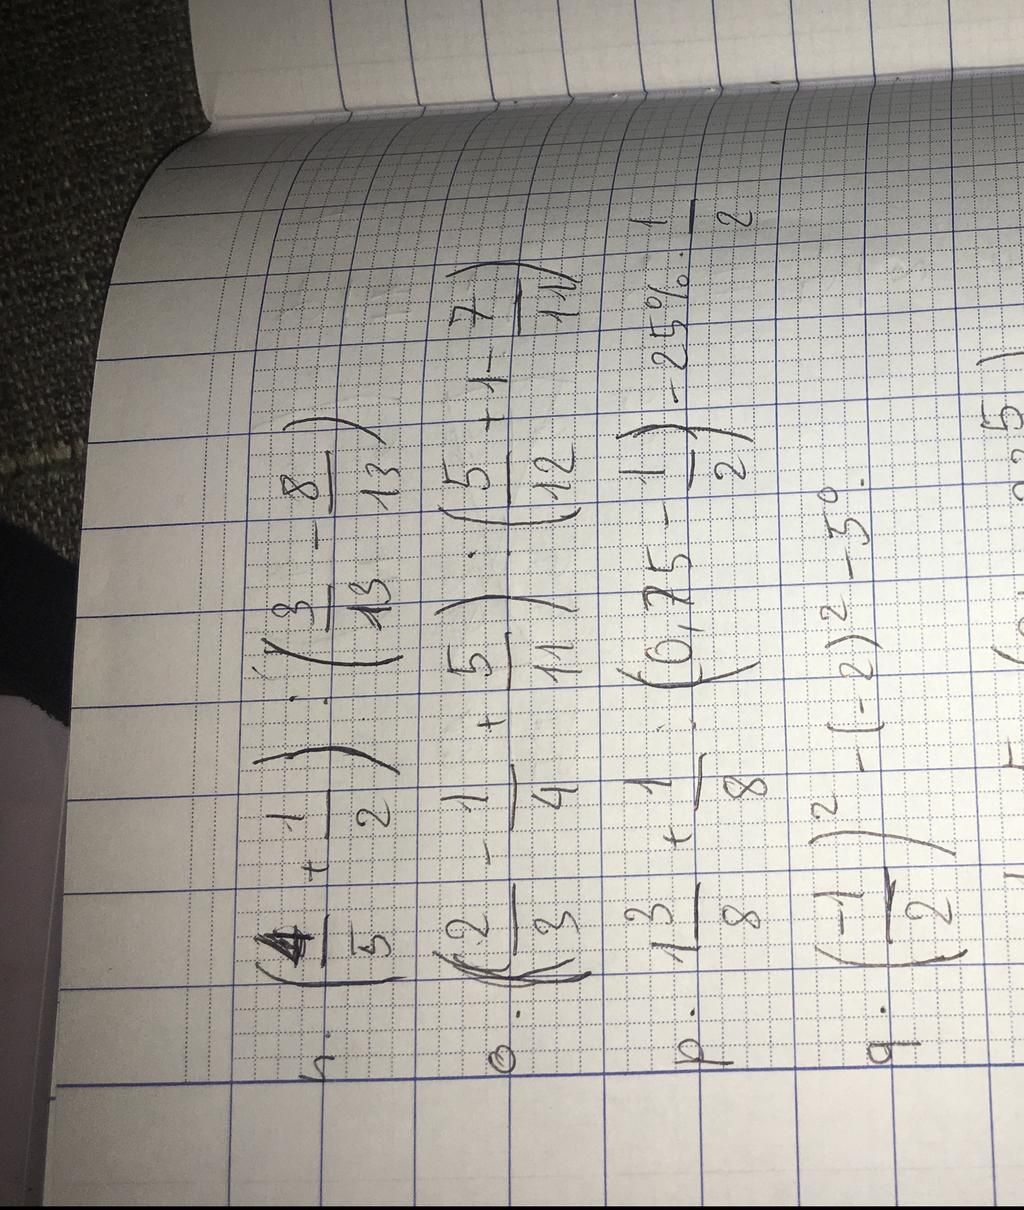 n. (4/5 + 1/2) : (3/13 - 8/13)
o. (2/3 - 1/4 + 5/11) : (5/12 + 1 - 7/11)
p. 13/8 + 1/8 : (0,75 - 1/2) - 25% . 1/2
q. (-1/2)² - (-2)² - 5⁰.